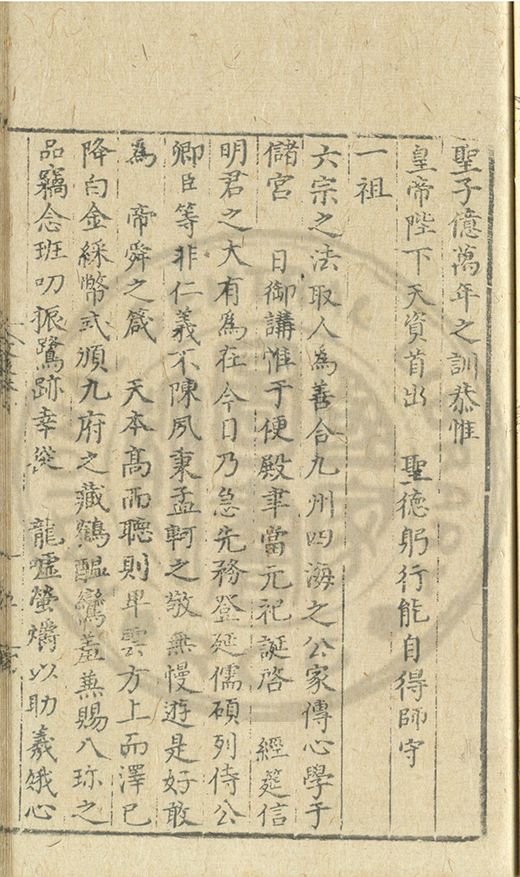 聖子億萬年之訓恭惟
皇帝陛下天資首出 聖德躬行能自得師守
一祖
六宗之法取人為善合九州四海之公家傳心學于
儲宮 日御講惟于便殿聿當元祀誕啓 經筵信
明君之大有為在今日乃急先務登延儒碩列侍公
卿臣等非仁義不陳夙秉孟軻之敬無慢遊是好敢
為 帝舜之箴 天本高而聽則卑雲方上而澤已
降白金綵幣式頒九府之藏鶴醞鸞羞兼賜八珎之
品竊念班叨振鷺跡幸從 龍噓螢爝以助羲娥心